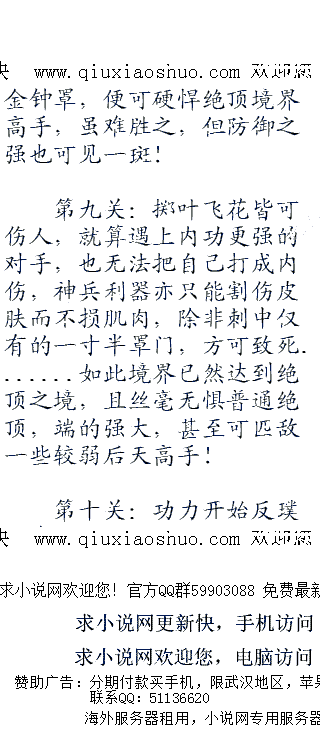 快 www.qiuxiaoshuo.com 欢迎您
金钟罩，便可硬悍绝顶境界
高手，虽难胜之，但防御之
强也可见一斑！
第九关：掷叶飞花皆可
伤人，就算遇上内功更强的
对手，也无法把自己打成内
伤，神兵利器亦只能割伤皮
肤而不损肌肉，除非刺中仅
有的一寸半罩门，方可致死.
......如此境界已然达到绝
顶之境，且丝毫无惧普通绝
顶，端的强大，甚至可匹敌
一些较弱后天高手！
第十关：功力开始反璞
快 www.qiuxiaoshuo.com 欢迎您
求小说网欢迎您！官方QQ群59903088 免费最新
求小说网更新快，手机访问
求小说网欢迎您，电脑访问
赞助广告：分期付款买手机，限武汉地区，苹果
联系QQ：51136620
海外服务器租用，小说网专用服务器